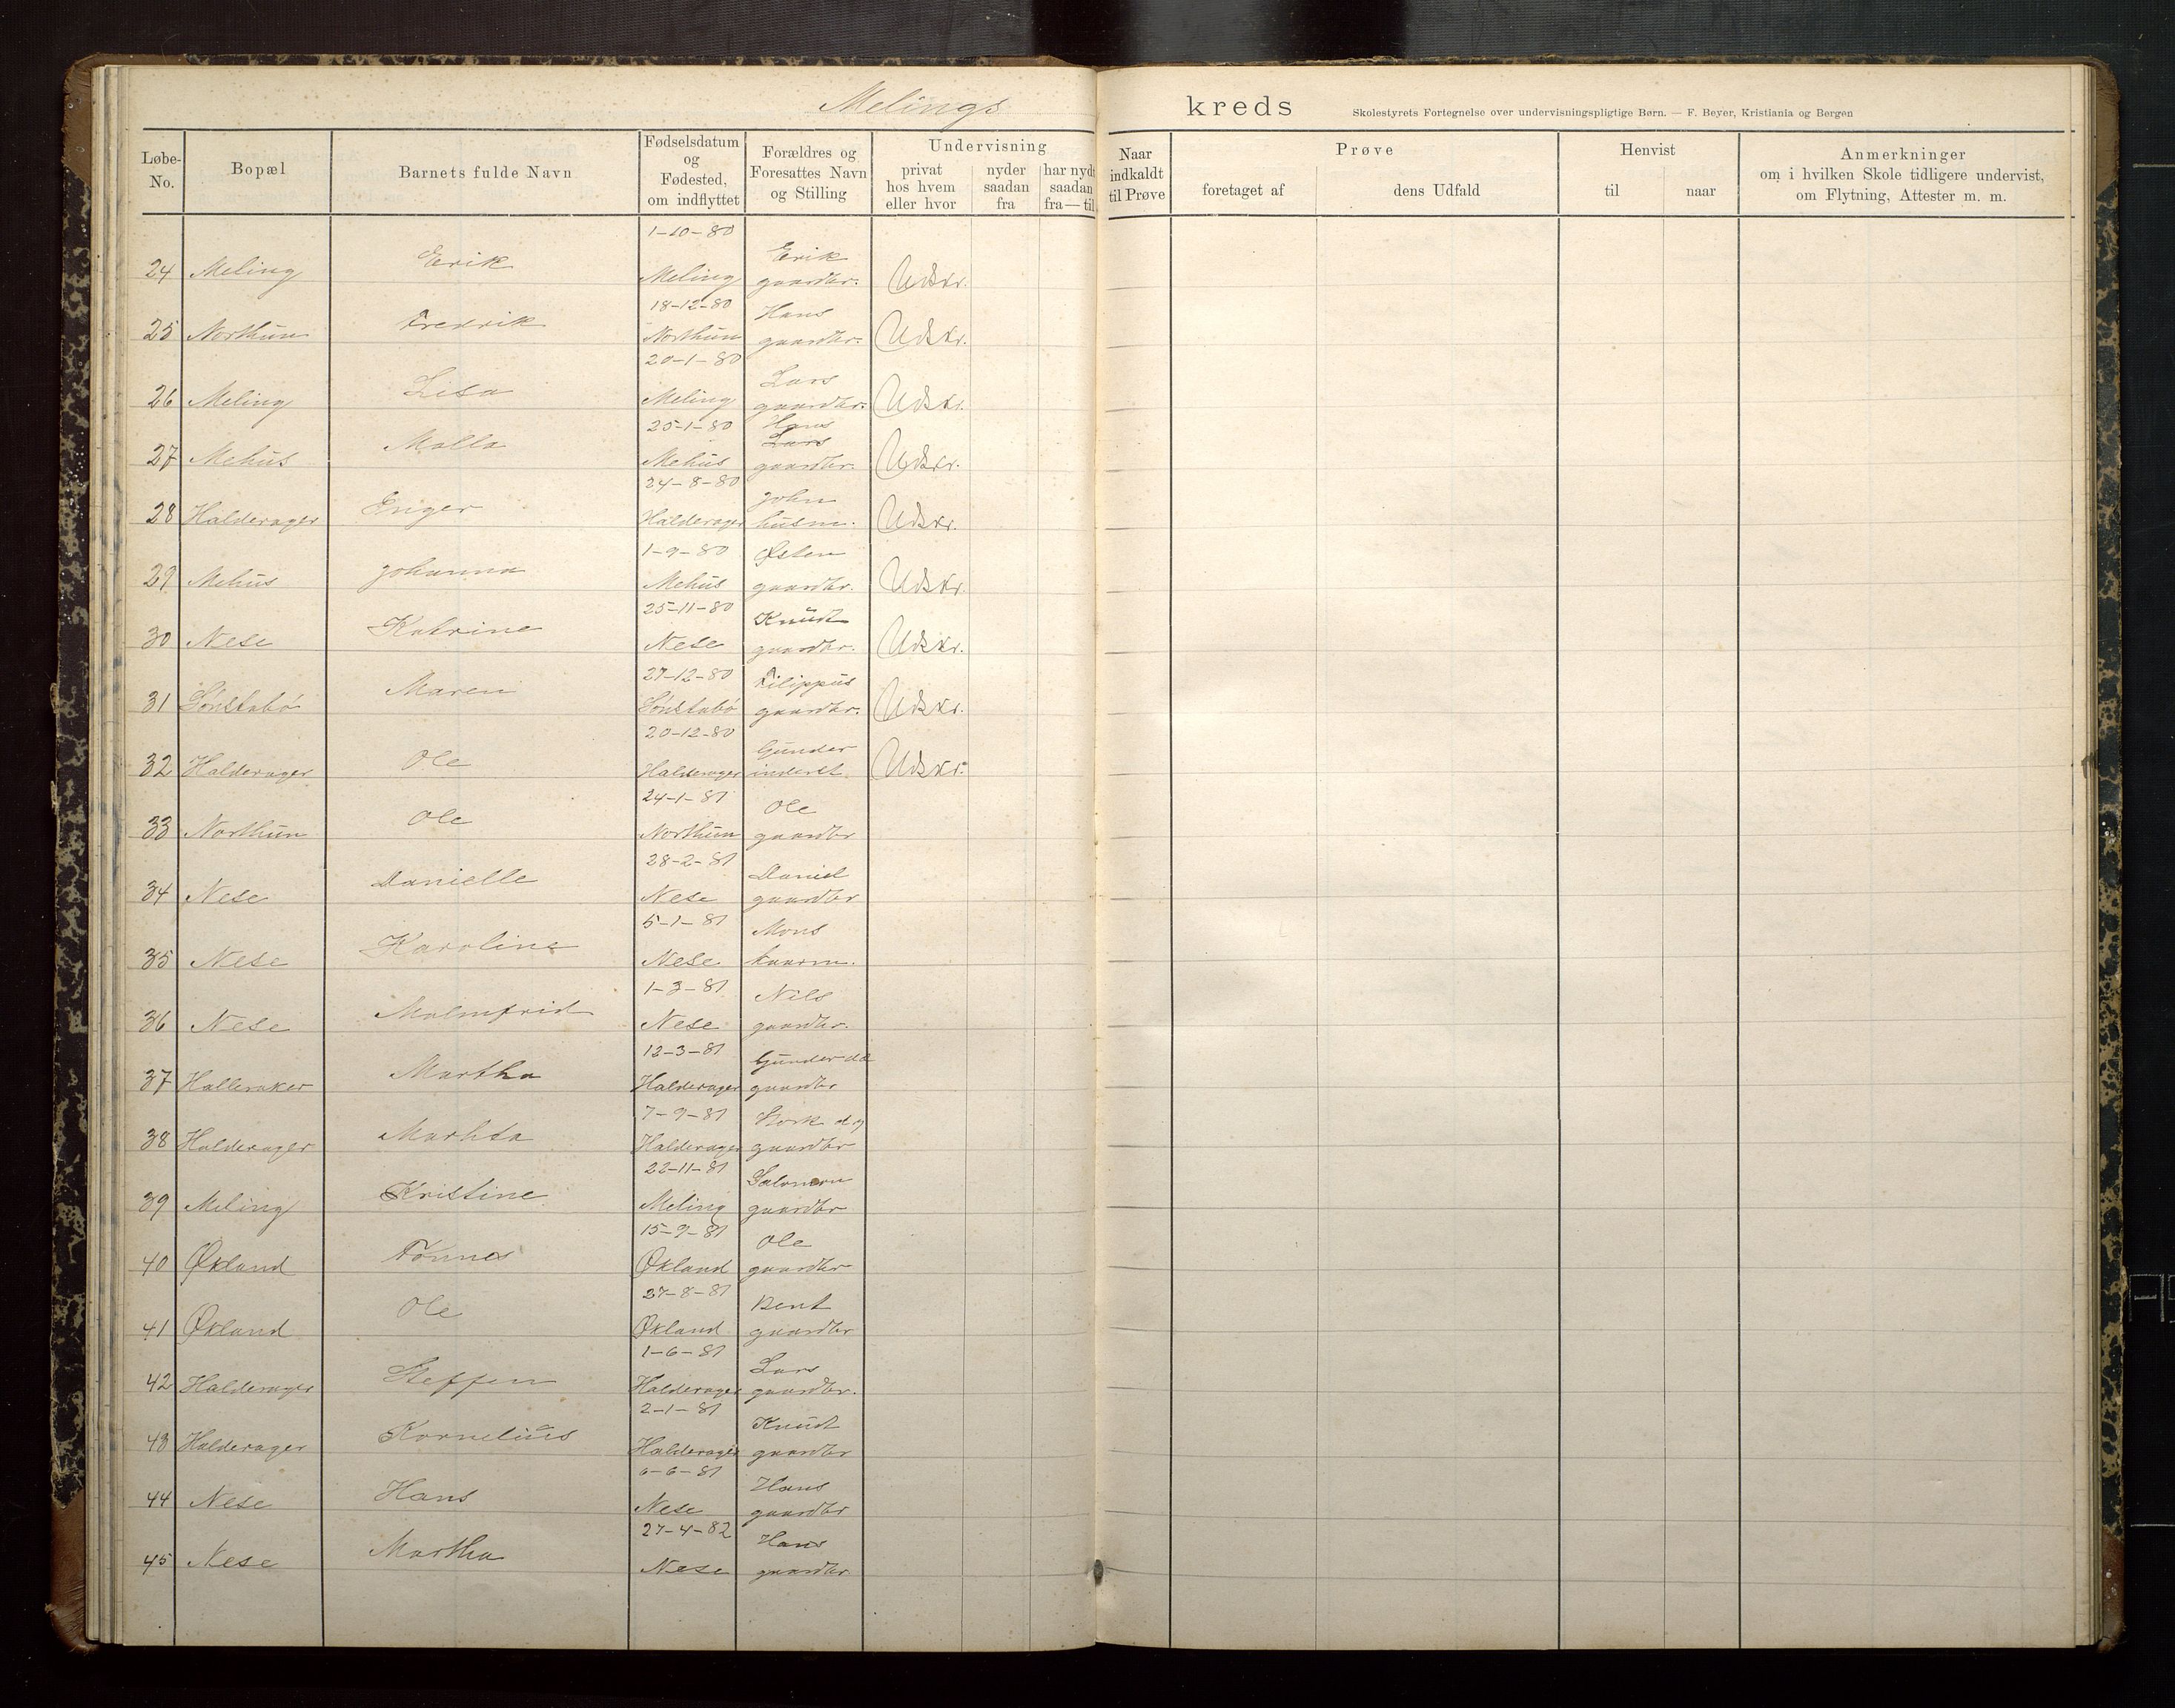 Melings kreds
Skolestyrets Fortegnelse over undervisningspligtige Børn. — F. Beyer, Kristiania og Bergen
Løbe-No. Bopæl Barnets fulde Navn Fødselsdatum og Fødested, om indflyttet Forældres og Foresattes Navn og Stilling Undervisning privat hos hvem eller hvor nyder saadan fra har nydt saadan fra—til Naar indkaldt til Prøve Prøve foretaget af dens Udfald Henvist til naar Anmerkninger om i hvilken Skole tidligere undervist, om Flytning, Attester m. m.
1-10-80
24 Meling Erik Meling Erik gaardbr. Udskr.
18-12-80
25 Northun Fredrik Northun Hans gaardbr. Udskr.
20-1-80
26 Meling Lisa Meling Lars gaardbr. Udskr.
25-1-80
27 Mehus Malla Mehus Hans Lars gaardbr. Udskr.
24-8-80
28 Halderager Enger Halderager John husm. Udskr.
1-9-80
29 Mehus Johanna Mehus Østen gaardbr. Udskr.
25-11-80
30 Nese Katrine Nese Knudt gaardbr. Udskr.
27-12-80
31 Sønstabø Maren Sønstabø Filippus gaardbr. Udskr.
20-12-80
32 Halderager Ole Halderager Gunder inderst. Udskr.
24-1-81
33 Northun Ole Northun Ole gaardbr
28-2-81
34 Nese Danielle Nese Daniel gaardbr
5-1-81
35 Nese Karoline Nese. Mons kaarm.
1-3-81
36 Nese Malmfrid Nese Nils gaardbr.
12-3-81
37 Halleraker Martha Halderager Gunder gaardbr
7-9-81
38 Halderager Marhta Halderager gaardbr
22-11-81
39 Meling Kristine Meling Salomon gaardbr
15-9-81
40 Økland Tønnes Økland Ole gaardbr
27-8-81
41 Økland Ole Økland Bent gaardbr
1-6-81
42 Halderager Steffen Halderager Lars gaardbr.
2-1-81
43 Halderager Kornelius Halderager Knudt gaardbr
6-6-81
44 Nese Hans Nese Hans gaardbr
27-4-82
45 Nese Martha Nese Hans gaardbr